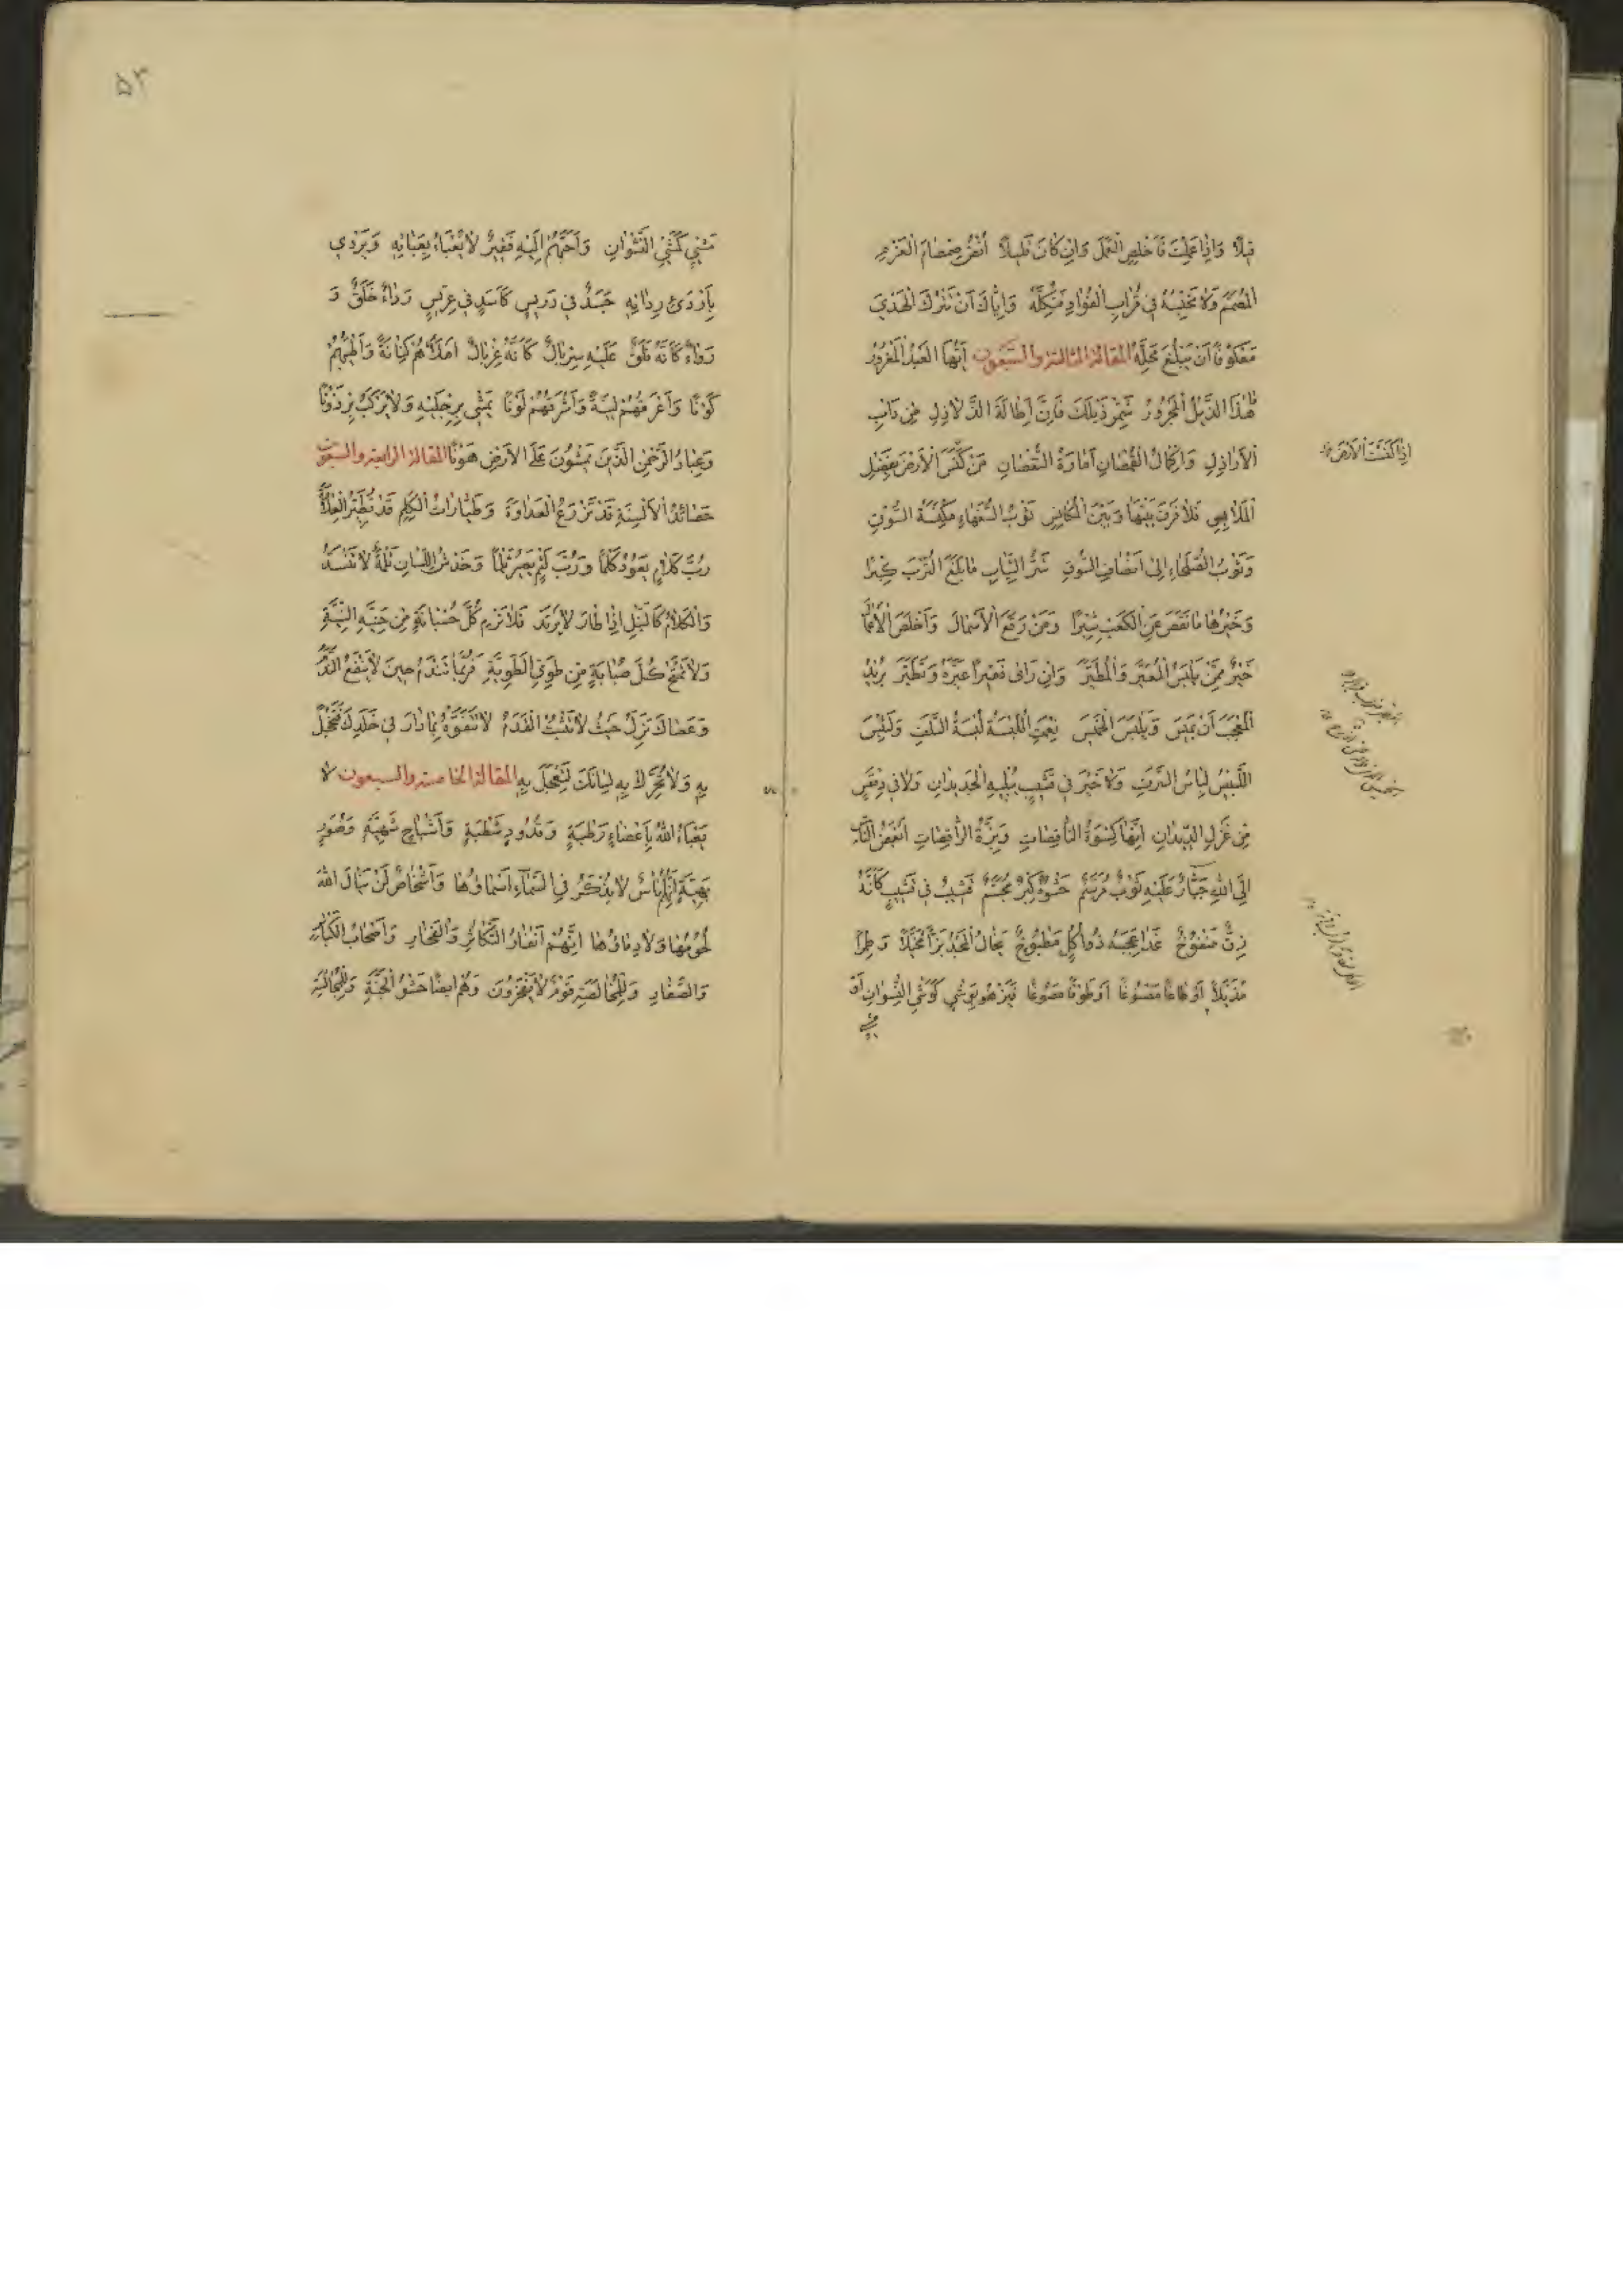 قبلًا وَاِذَا عَمِلْتَ فَاَخْلِصِ الْعَمَلَ وَاِنْ كَانَ قَلِيلًا اُنْضُ صَمْصَامَ الْعَزْمِ
الْمُصَمِّمِ وَلَا فِي قِرَابِ الْفُؤَادِ وَاِيَّاكَ اَنْ تَتْرُكَ الْهَدْيَ
مَعْكُوفًا اَنْ يَبْلُغَ مَحِلَّهُ المقالة الثالثة والسبعون اَيُّهَا الْعَبْدُ الْمَغْرُورُ
مَا هٰذَا الذَّيْلُ الْمَجْرُورُ شَمِّرْ ذَيْلَكَ فَاِنَّ اِطَالَةَ الذَّلَاذِلِ مِنْ دَابِ
الْاَرَاذِلِ وَاِرْفَالُ الْقُمْصَانِ اَمَارَةُ النُّقْصَانِ مَنْ كَنَسَ الْاَرْضَ بِفَضْلِ
الْمَلَابِسِ فَلَا فَرْقَ بَيْنَهَا وَبَيْنَ الْمَكَانِسِ ثَوْبُ السُّفَهَاءِ مِكْنَسَةُ السُّوقِ
وَثَوْبُ الصُّلَحَاءِ اِلَى اَنْصَافِ السُّوقِ شَرُّ الثِّيَابِ مَا بَلَغَ التُّرْبَ كِبْرًا
وَخَيْرُهَا مَا نَقَصَ عَنِ الْكَعْبِ شِبْرًا وَمَنْ رَقَعَ الْاَسْمَالَ وَاَخْلَصَ الْاَعْمَالَ
خَيْرٌ مِمَّنْ يَلْبَسُ الْمُعَيَّرَ وَالْمُطَيَّرَ وَاِنْ رَاٰى فَقِيرًا عَيَّرَهُ وَتَطَيَّرَ يُرِيدُ
الْمُعْجَبُ اَنْ يَمِيسَ وَيَلْبَسَ الْخَمِيسَ نِعْمَتِ اللِّبْسَةُ لُبْسَةُ السَّلَفِ وَلَيْسَ
اللَّبِيسُ لِبَاسُ التَّرَفِ وَلَا خَيْرَ فِي قَشِيبٍ يُبْلِيهِ الْجَدِيدَانِ وَلَا فِي دِمَقْسٍ
مِنْ غَزْلِ الدِّيدَانِ اِنَّهَا كِسْوَةُ النَّاقِصَاتِ وَبِزَّةُ الرَّاقِصَاتِ اَبْغَضُ النَّاسِ
اِلَى اللّٰهِ جَبَّارٌ عَلَيْهِ ثَوْبٌ مُرَسَّمٌ حَشْوُهُ كِبْرٌ مُجَسَّمٌ قَشِيبٌ فِي قَشِيبٍ كَاَنَّهُ
زِقٌّ مَنْفُوخٌ غَدَا عَجَبُهُ ذُو اُكُلٍ مَطْبُوخٍ يَخَالُ الْمَجْدَ بَزًّا وَطِمْرًا
مُذَيَّلًا اَوْ صَاعًا مَصْنُوعًا اَوْ طَوْقًا مَصُوغًا فَيَزْهُو بِوَشْيٍ كَوَشْيِ النِّسْوَانِ اَوْ
مشى
اِذَا كَنَسْتَ الْاَرْضَ
مَشْيٍ كَمَشْيِ النَّشْوَانِ وَاَحَبُّهُمْ اِلَيْهِ فَقِيرٌ لَا يَعْبَاُ بِعَبَائِهِ وَيَرْتَدِي
بِاَرْدَى رِدَائِهِ جَسَدٌ فِي دَرِيسٍ كَاَسَدٍ فِي عِرِّيسٍ رِدَاءٌ خَلَقٌ وَ
رُوَاءٌ كَاَنَّهُ فَلَقٌ عَلَيْهِ سِرْبَالٌ كَاَنَّهُ غِرْبَالٌ اَمْلَاُهُمْ كِنَانَةً وَاَطْيَبُهُمْ
كَوْنًا وَاَعْرَفُهُمْ لِبْسَةً وَاَشْرَفُهُمْ لَوْنًا يَمْشِي بِرِجْلَيْهِ وَلَا يَرْكَبُ بِرْذَوْنًا
وَعِبَادُ الرَّحْمٰنِ الَّذِينَ يَمْشُونَ عَلَى الْاَرْضِ هَوْنًا المقالة الرابعة والسبعون
حَصَائِدُ الْاَلْسِنَةِ قَدْ تَزْرَعُ الْعَدَاوَةَ وَطَيَّارَاتُ الْكَلِمِ قَدْ
رُبَّ كَلَامٍ يَعُودُ كَلْمًا وَرُبَّ لَثْمٍ يَصِيرُ ثَلْمًا وَخَدْشُ اللِّسَانِ ثُلْمَةٌ لَا تَنْسَدُّ
وَالْكَلَامُ كَالنَّبْلِ اِذَا طَارَ لَا يَرْتَدُّ فَلَا تَرْمِ كُلَّ حُسْبَانَةٍ مِنْ جَنَّةِ النِّيَّةِ
وَلَا تَمْتَحْ كُلَّ صُبَابَةٍ مِنْ طَوِيِّ الطَّوِيَّةِ فَرُبَّمَا تَنْدَمُ حِينَ لَا يَنْفَعُ النَّدَمُ
وَعَصَاكَ تَزِلُّ حَيْثُ لَا تَثْبُتُ الْقَدَمُ لَا تَتَفَوَّهْ بِمَا دَارَ فِي خَلَدِكَ فَتَخْجَلَ
بِهِ وَلَا تُحَرِّكْ بِهِ لِسَانَكَ لِتَعْجَلَ بِهِ المقالة الخامسة والسبعون لَا
يَعْبَاُ اللّٰهُ بِاَعْضَاءٍ رَطْبَةٍ وَقُدُودٍ شَطْبَةٍ وَاَشْبَاحٍ شَهِيَّةٍ وَصُوَرٍ
بَهِيَّةٍ لَا يُذْكَرُ فِي السَّمَاءِ اَسْمَاؤُهَا وَاَشْخَاصٌ لَنْ يَنَالَ اللّٰهَ
لُحُومُهَا وَلَا دِمَاؤُهَا اِنَّهُمْ اَنْفَارُ التَّكَاثُرِ وَالْفَخَارِ وَاَصْحَابُ الْكَبَائِرِ
وَالصِّغَارِ وَلِلْمُخَالَصَةِ قَوْمٌ لَا يَفْخَرُونَ وَهُمْ اَيْضًا حَشْوُ الْجَنَّةِ وَلِلْمُجَالَسَةِ
٥٣